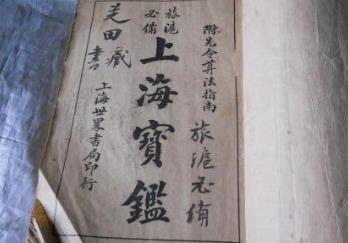 附先令算法指南
旅滬必備
旅滬
必備
上海寶鑑
芝田藏書
上海世界書局印行